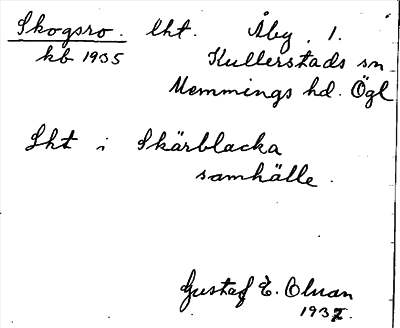 Skogsro. lht. Åby. 1.
kb 1935 Kullerstads sn
Memmings hd. Ögl
Lht i Skärblacka
samhälle.
Gustaf E.
193